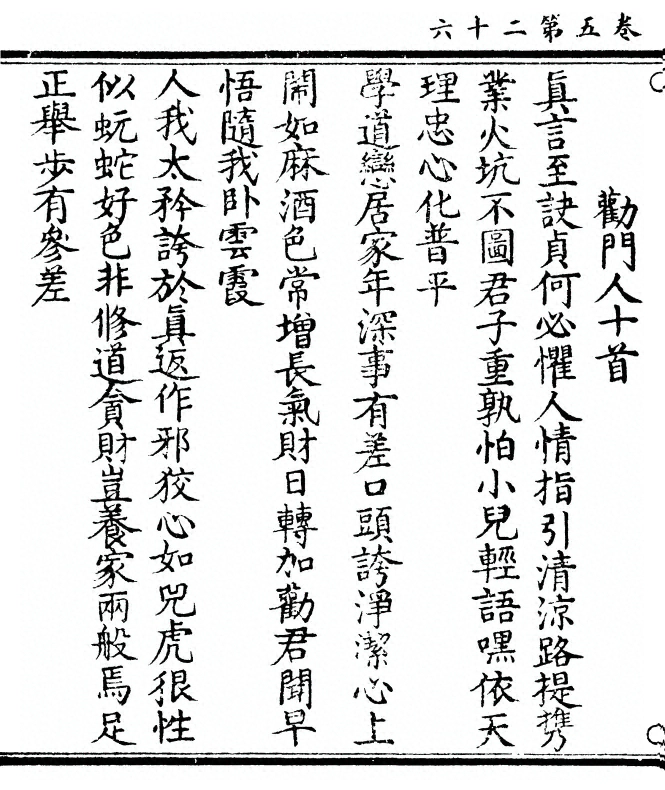 卷五第二十六
勸門人十首
眞言至訣貞何必懼人情指引清涼路提攜
業火坑不圖君子重孰怕小兒輕語嘿依天
理忠心化普平
學道戀居家年深事有差口頭誇淨潔心上
閙如麻酒色常增長氣財日轉加勸君聞早
悟隨我卧雲霞
人我太矜誇於眞返作邪狡心如兕虎狠性
似蚖蛇好色非修道貪財豈養家兩般焉足
正舉步有參差